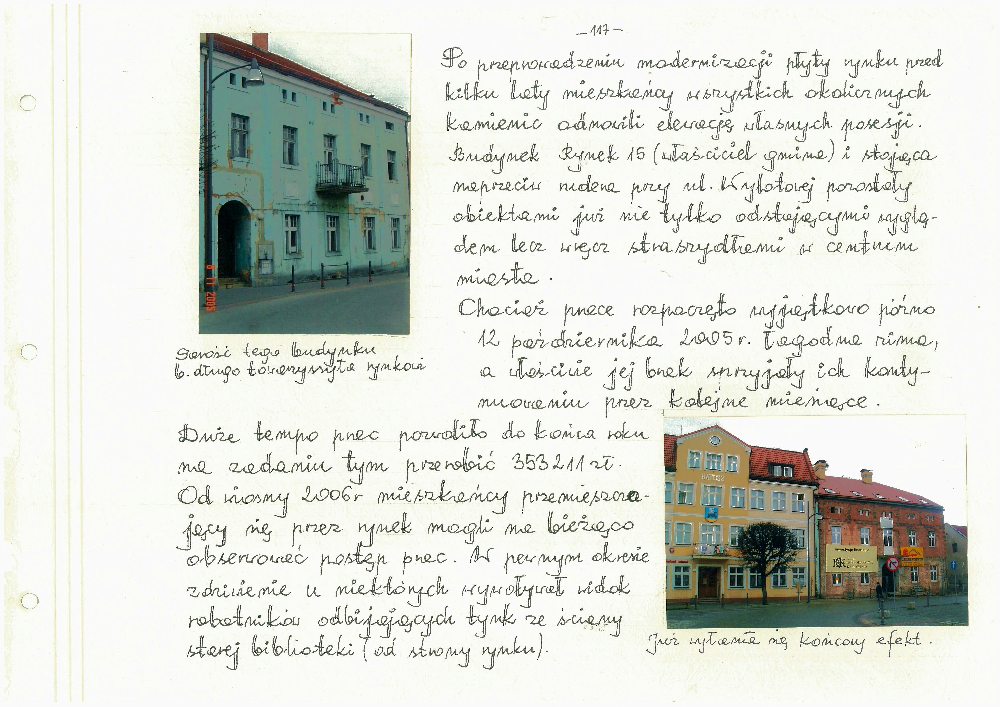 - 117 -
Po przeprowadzeniu modernizacji płyty rynku przed
kilku laty mieszkańcy wszystkich okolicznych
kamienic odnowili elewację własnych posesji.
Budynek Rynek 15 (właściciel gmina) i stojąca
naprzeciw rudera przy ul. Wylotowej pozostały
obiektami już nie tylko odstającymi wyglą-
dem lecz wręcz straszydłami w centrum
miasta.
Chociaż prace rozpoczęto wyjątkowo późno
12 października 2005 r. łagodna zima,
a właściwie jej brak sprzyjały ich konty-
nuowaniu przez kolejne miesiące.
Szarość tego budynku
b. długo towarzyszyła rynkowi
Duże tempo prac pozwoliło do końca roku
na zadaniu tym przerobić 353 211 zł.
Od wiosny 2006 r mieszkańcy przemieszcza-
jący się przez rynek mogli na bieżąco
obserwować postęp prac. W pewnym okresie
zdziwienie u niektórych wywoływał widok
robotników odbijających tynk ze ściany
starej biblioteki (od strony rynku).
Już wyłania się końcowy efekt.
RATUSZ